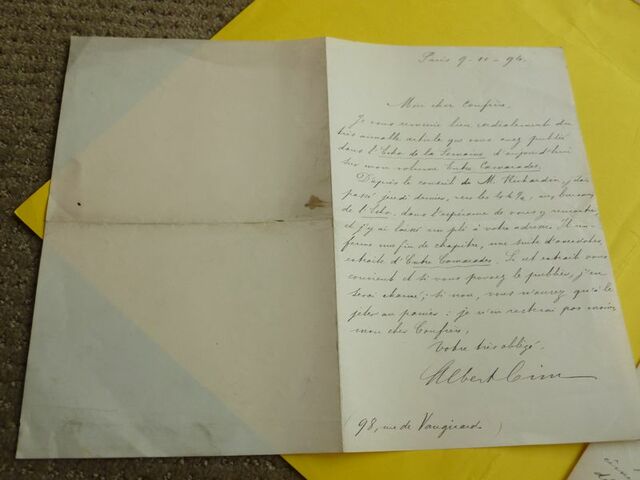 Paris 9-11-94.
Mon cher Confrère,
Je vous remercie bien cordialement du
très aimable article que vous avez publié
dans l'Echo de la Semaine d'aujourd'hui
sur mon volume Entre Camarades.
D'après le conseil de M. Richardin, j'étais
passé jeudi dernier, vers les 4h ½, aux bureaux
de l'Echo, dans l'espérance de vous y rencontrer,
et j'y ai laissé un pli à votre adresse. Il ren-
ferme une fin de chapitre, une suite d'anecdotes,
extraite d'Entre Camarades. Si cet extrait vous
convient et si vous pouvez le publier, j'en
serai charmé; si non, vous n'aurez qu'à le
jeter au panier: je n'en resterai pas moins,
mon cher Confrère,
Votre très obligé.
Albert Cim
(98, rue de Vaugirard)